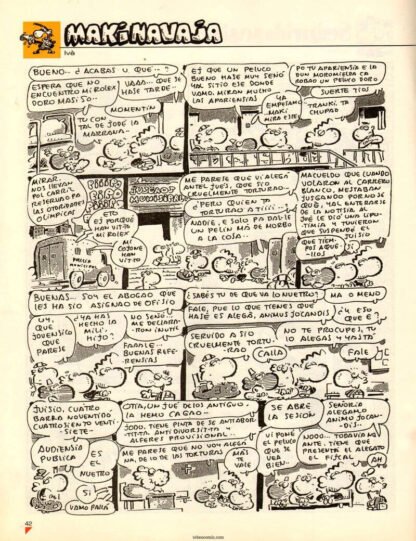 MAKINAVAJA
Ivà
BUENO.. ¿ACABAS U QUE..?
ESPERA QUE NO
ENCUENTRO MI ROLEX
DORO MASISO..
VAAA.. QUE SE
HASE TARDE..
MOMENTIN
TU CON
TAL DE JODÉ LA
MARRANA..
EJ QUE UN PELUCO
BUENO HASE MUY SEÑÓ
YAL SITIO ESE DONDE
VAMO, MIRAN MUCHO
LAS APARIENSIAS
YA
EMPESAMO
MAKI
MIRA ESE
PO TU APARIENSIA E LA
DUN MOROMIELDA CA
ROBAO UN PELUCO DORO
SUERTE TIOS
TRANKI, TA
CHUPAO
MIRAR,
NOS LLEVAN
POL CARRIL
RESERVAO PA
LAS OTORIDADES
OLIMPICAS
ETO
ES PORQUÉ
HAN VITTO
MI ROLEX
MI
COJONE
HAN
VITTO
JUSGAOS
MUNISIPALES
ME PARESE QUE VI ALEGÁ
ANTE JUÉS, QUE SIO
CRUELMENTE TORTURAO
¿PERO QUIEN TA
TORTURAO A TIII..?
NADIE, E SOLO PA DALLE
UN PELÍN MÁ DE MORBO
A LA COSA..
MACUELDO QUE CUANDO
VOLARON AL CARRERO
BLANCO, MESTABAN
JUSGANDO PORNO SÉ
QUÉ, YAL ENTERARSE
DE LA NOTISIA AL
JUÉ LE DIÓ UNA LIPO-
TIMIA Y TUVIERON
QUE SUSPENDÉ EL
JUISIO
QUE TIEM-
POS AQUE-
LLOS
BUENAS.. SOY EL ABOGAO QUE
LES HA SIO ASIGNAO DE OFISIO
UY,
QUE
JOVENSITO
QUE
PARESE
¿YA HAS
HECHO LA
MILI,
HIJO?
NO SEÑÓ,
ME DECLARA-
RON INUTIL
FAAALE..
BUENAS REFE-
RENSIAS
¿SABÉS TU DE QUE VA LO NUETTRO?
MA O MENO
FALE, PUE LO QUE TIENES QUE
HASÉ ES ALEGÁ, ANIMUS JOCANDIS
¿Y ESO
QUE E?
SERVIDÓ A SIO
CRUELMENTE TORTU-
RAO
CALLA
NO TE PROCUPES, TU
LO ALEGAS Y YASTÁ
FALE
JUISIO, CUATRO
BARRA NOVENTIDO
CUATROSIENTO VENTI-
SIETE..
AUDIENSIA
PUBLICA
ES
EL
NUETTRO
SI
VAMO PALLÁ
OTIA, UN JUÉ DE LOS ANTIGUO,
LA HEMO CAGAO..
JODO, TIENE PINTA DE SÉ ANTIABOR-
TISTA, ANTI DIVORSISTA Y
ALFERES PROVISIONAL..
ME PARESE QUE NO VOY ALEGÁ
NA, DE LO DE LAS TORTURAS
MÁS
TE
VALE
SE ABRE
LA SESIÓN
VI PONÉ
EL PELUCO
QUE SE
VEA BIEN..
SEÑORIA
ALEGAMO
ANIMO JOCAN-
DIS..
NOOO.. TODAVIA NO
ANTE, TIENE QUE
PRESENTÁ EL ALEGATO
EL FISCAL
AH
42